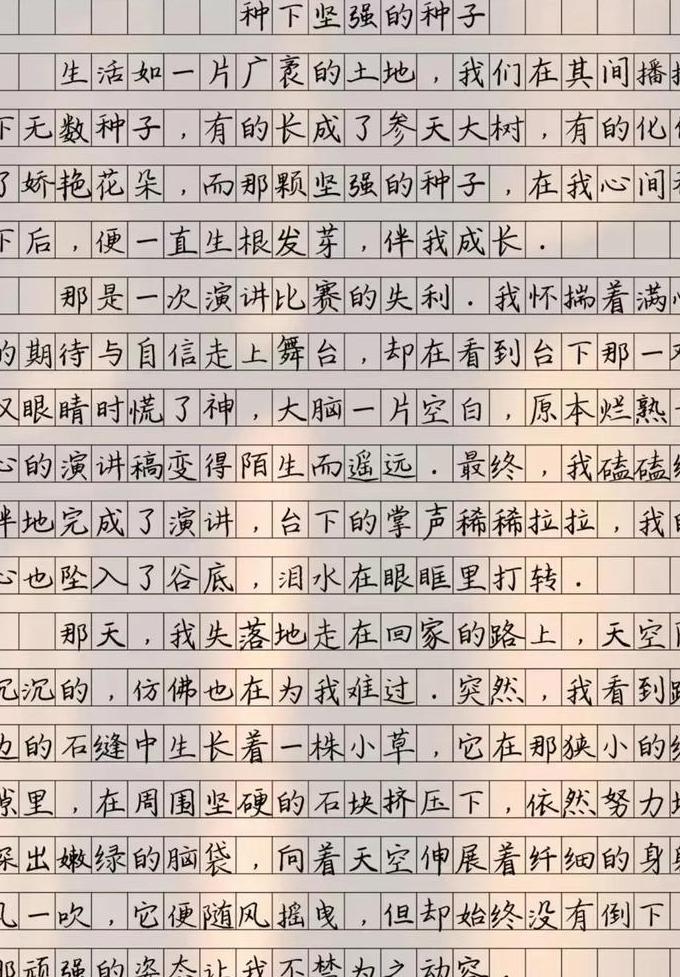 种下坚强的种子
生活如一片广袤的土地，我们在其间播撒
下无数种子，有的长成了参天大树，有的化作
了娇艳花朵，而那颗坚强的种子，在我心间种
下后，便一直生根发芽，伴我成长．
那是一次演讲比赛的失利．我怀揣着满心
的期待与自信走上舞台，却在看到台下那一双
双眼睛时慌了神，大脑一片空白，原本烂熟于
心的演讲稿变得陌生而遥远．最终，我磕磕绊
绊地完成了演讲，台下的掌声稀稀拉拉，我的
心也坠入了谷底，泪水在眼眶里打转．
那天，我失落地走在回家的路上，天空阴
沉沉的，仿佛也在为我难过．突然，我看到路
边的石缝中生长着一株小草，它在那狭小的缝
隙里，在周围坚硬的石块挤压下，依然努力地
探出嫩绿的脑袋，向着天空伸展着纤细的身躯
风一吹，它便随风摇曳，但却始终没有倒下
那顽强的姿态让我不禁为之动容．